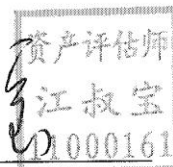 资产评估师
江叔宝
11000161